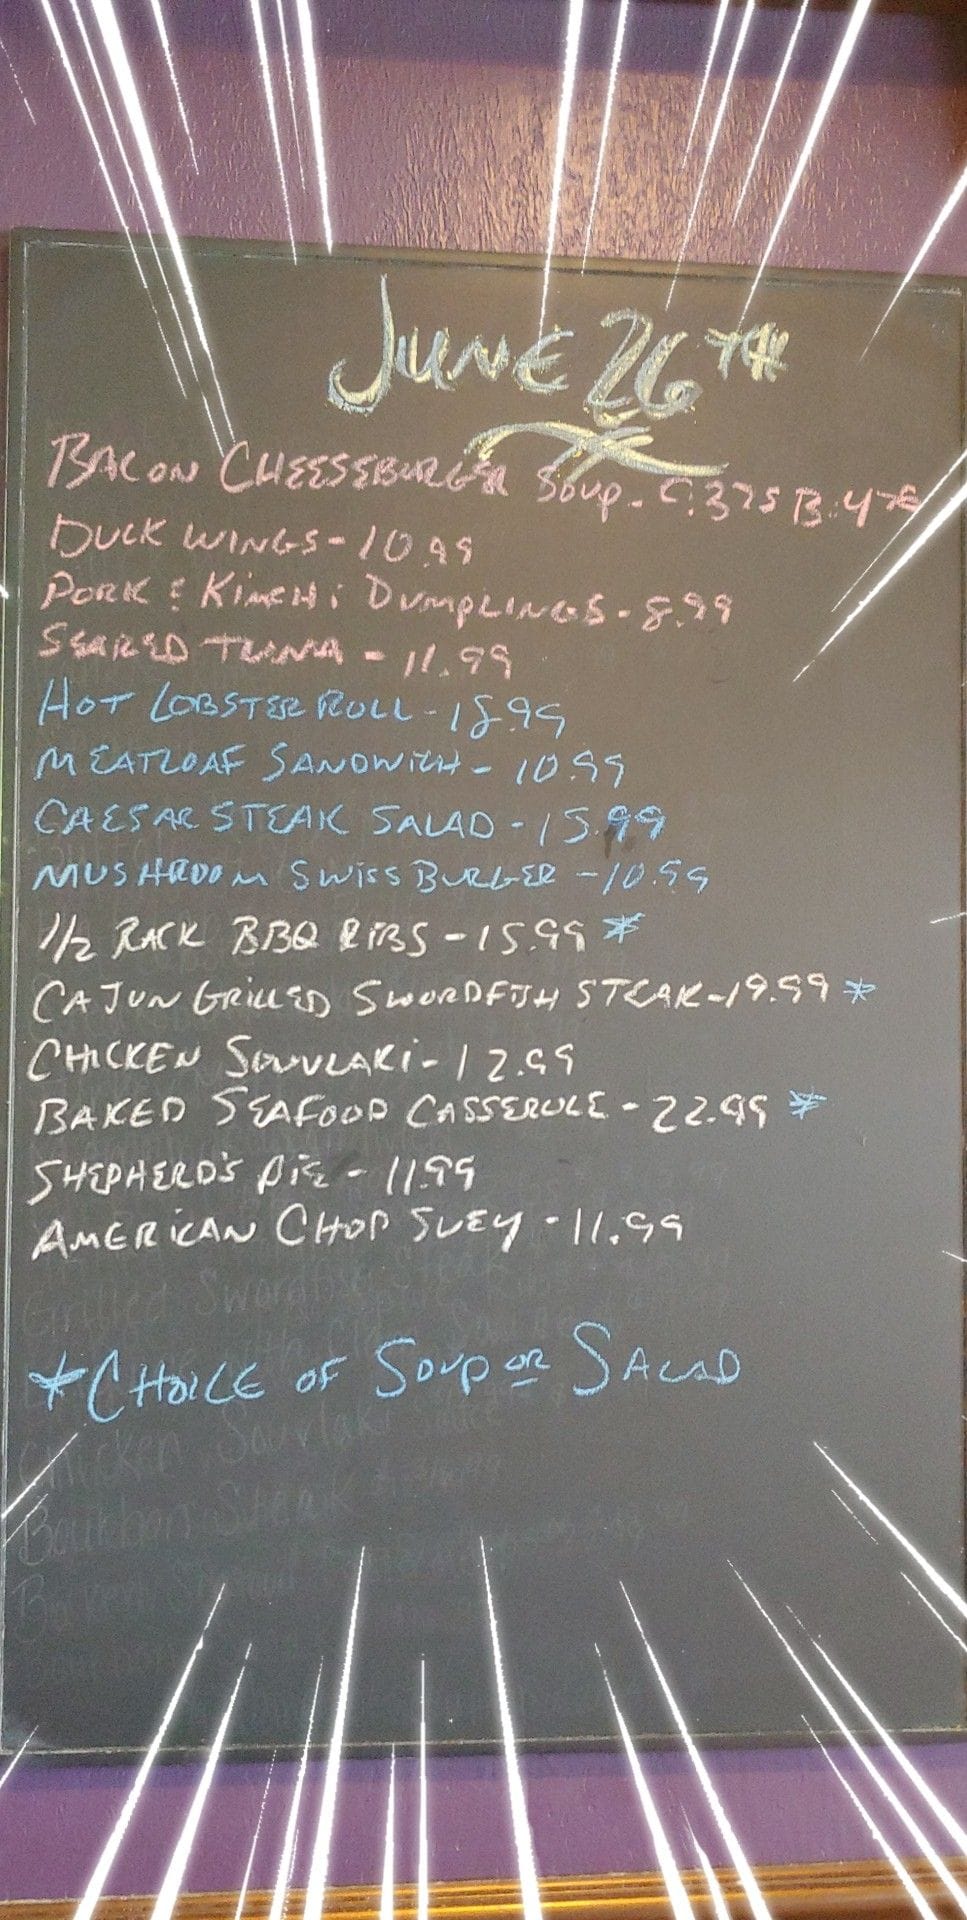 JUNE 26TH
BACON CHEESEBURGER SOUP - C:375 B:475
DUCK WINGS - 10.99
PORK & KIMCHI DUMPLINGS - 8.99
SEARED TUNA - 11.99
HOT LOBSTER ROLL - 18.99
MEATLOAF SANDWICH - 10.99
CAESAR STEAK SALAD - 15.99
MUSHROOM SWISS BURGER - 10.99
1/2 RACK BBQ RIBS - 15.99 *
CAJUN GRILLED SWORDFISH STEAK - 19.99 *
CHICKEN SOUVLAKI - 12.99
BAKED SEAFOOD CASSEROLE - 22.99 *
SHEPHERD'S PIE - 11.99
AMERICAN CHOP SUEY - 11.99
Grilled Swordfish Steak
*CHOICE OF SOUP OR SALAD
Chicken Souvlaki
Bourbon Steak